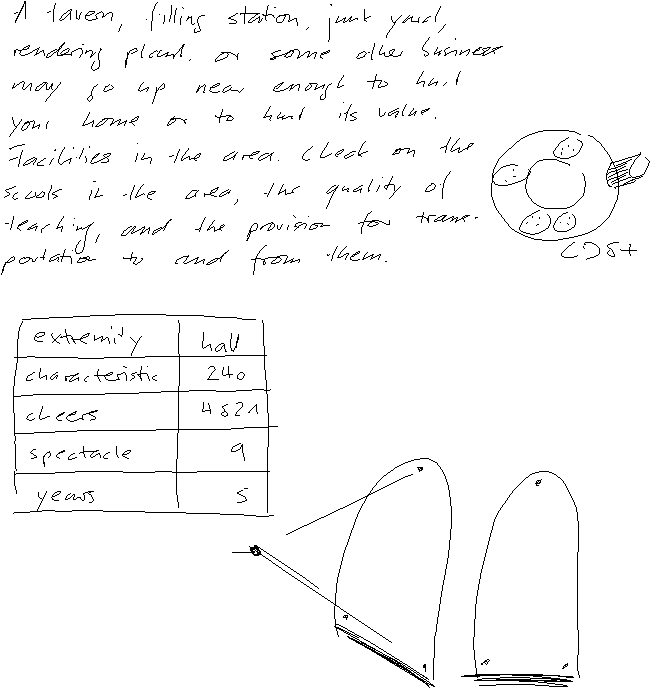 A tavern, filling station, junk yard,
rendering plant, or some other business
may go up near enough to hurt
your home or to hurt its value.
Facilities in the area. Check on the
scools in the area, the quality of
teaching, and the provision for trans-
portation to and from them.
extremity hall
characteristic 240
cheers 4521
spectacle 9
years 5